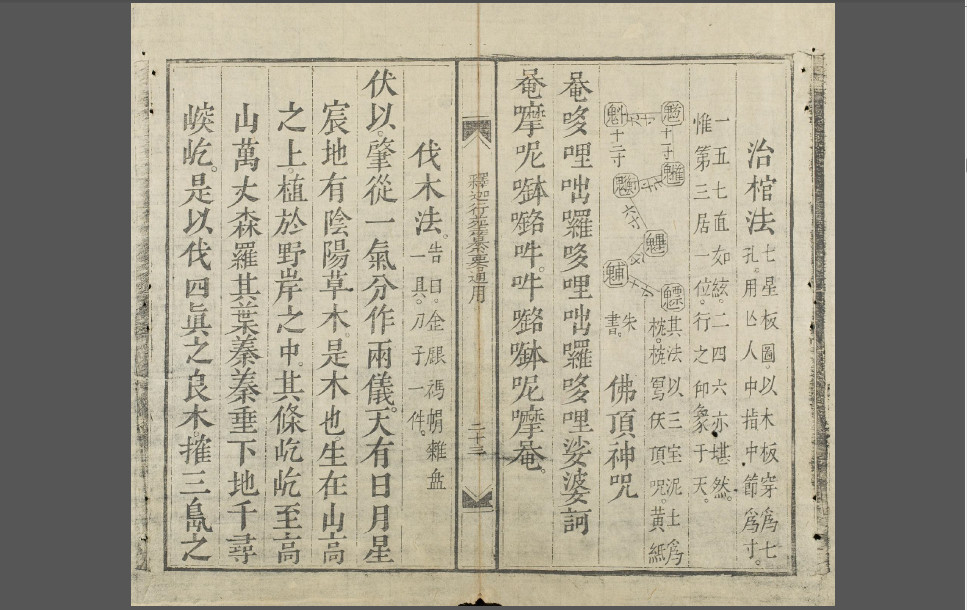 治棺法
七星板圖。以木板穿爲七
孔。用亡人中指中節爲寸。
一五七直如絃。二四六亦堪然。
惟第三居一位。行之印象于天。
魁
十二寸
十一寸
六寸
其法以三宝泥土爲
枕。枕寫仸頂呪。黃紙
朱
書。
佛頂神咒
菴哆哩咄羅哆哩咄羅哆哩娑婆訶
菴嚤呢吽。吽呢嚤菴。
釋迦行纂要通用
二十三
伐木法。
告曰。金銀禡帽雜盘
一具。刀子一件。
伏以。肇從一氣分作兩儀。天有日月星
宸地有陰陽草木。是木也。生在山高
之上。植於野岸之中。其條屹屹至高
山萬丈森羅其葉蓁蓁垂下地千尋
屹。是以伐四眞之良木。摧三之